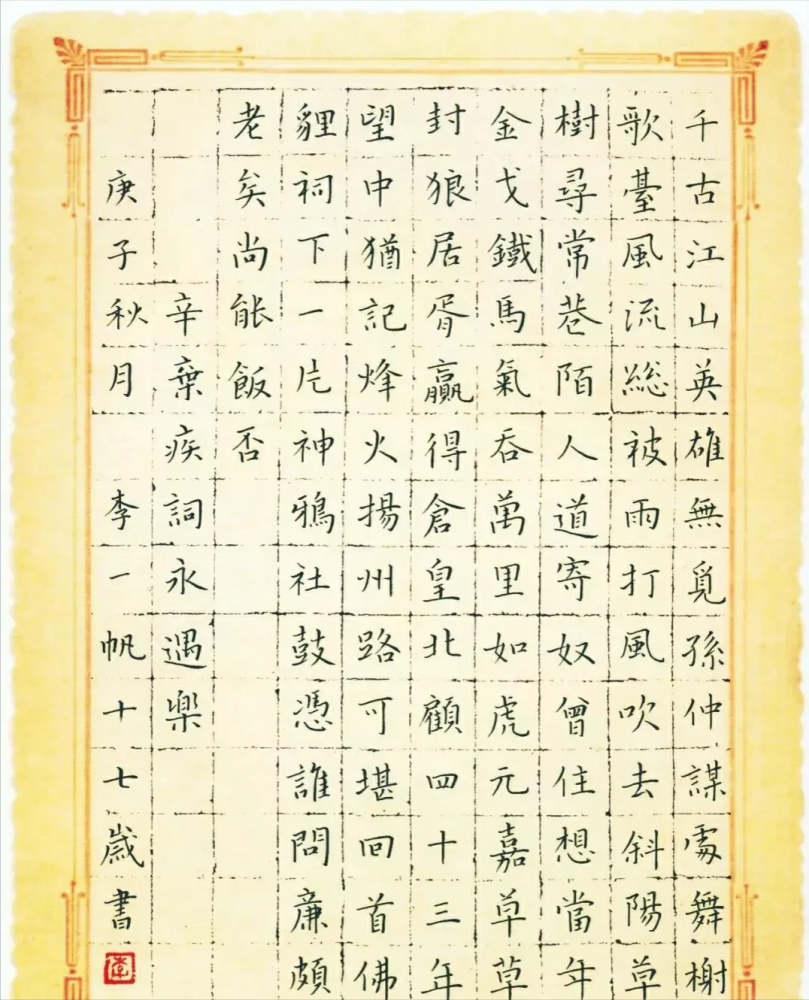 千古江山英雄無覓孫仲謀處舞榭
歌臺風流總被雨打風吹去斜陽草
樹尋常巷陌人道寄奴曾住想當年
金戈鐵馬氣吞萬里如虎元嘉草草
封狼居胥贏得倉皇北顧四十三年
望中猶記烽火揚州路可堪回首佛
貍祠下一片神鴉社鼓憑誰問廉頗
老矣尚能飯否
辛棄疾詞永遇樂
庚子秋月 李一帆十七歲書
李